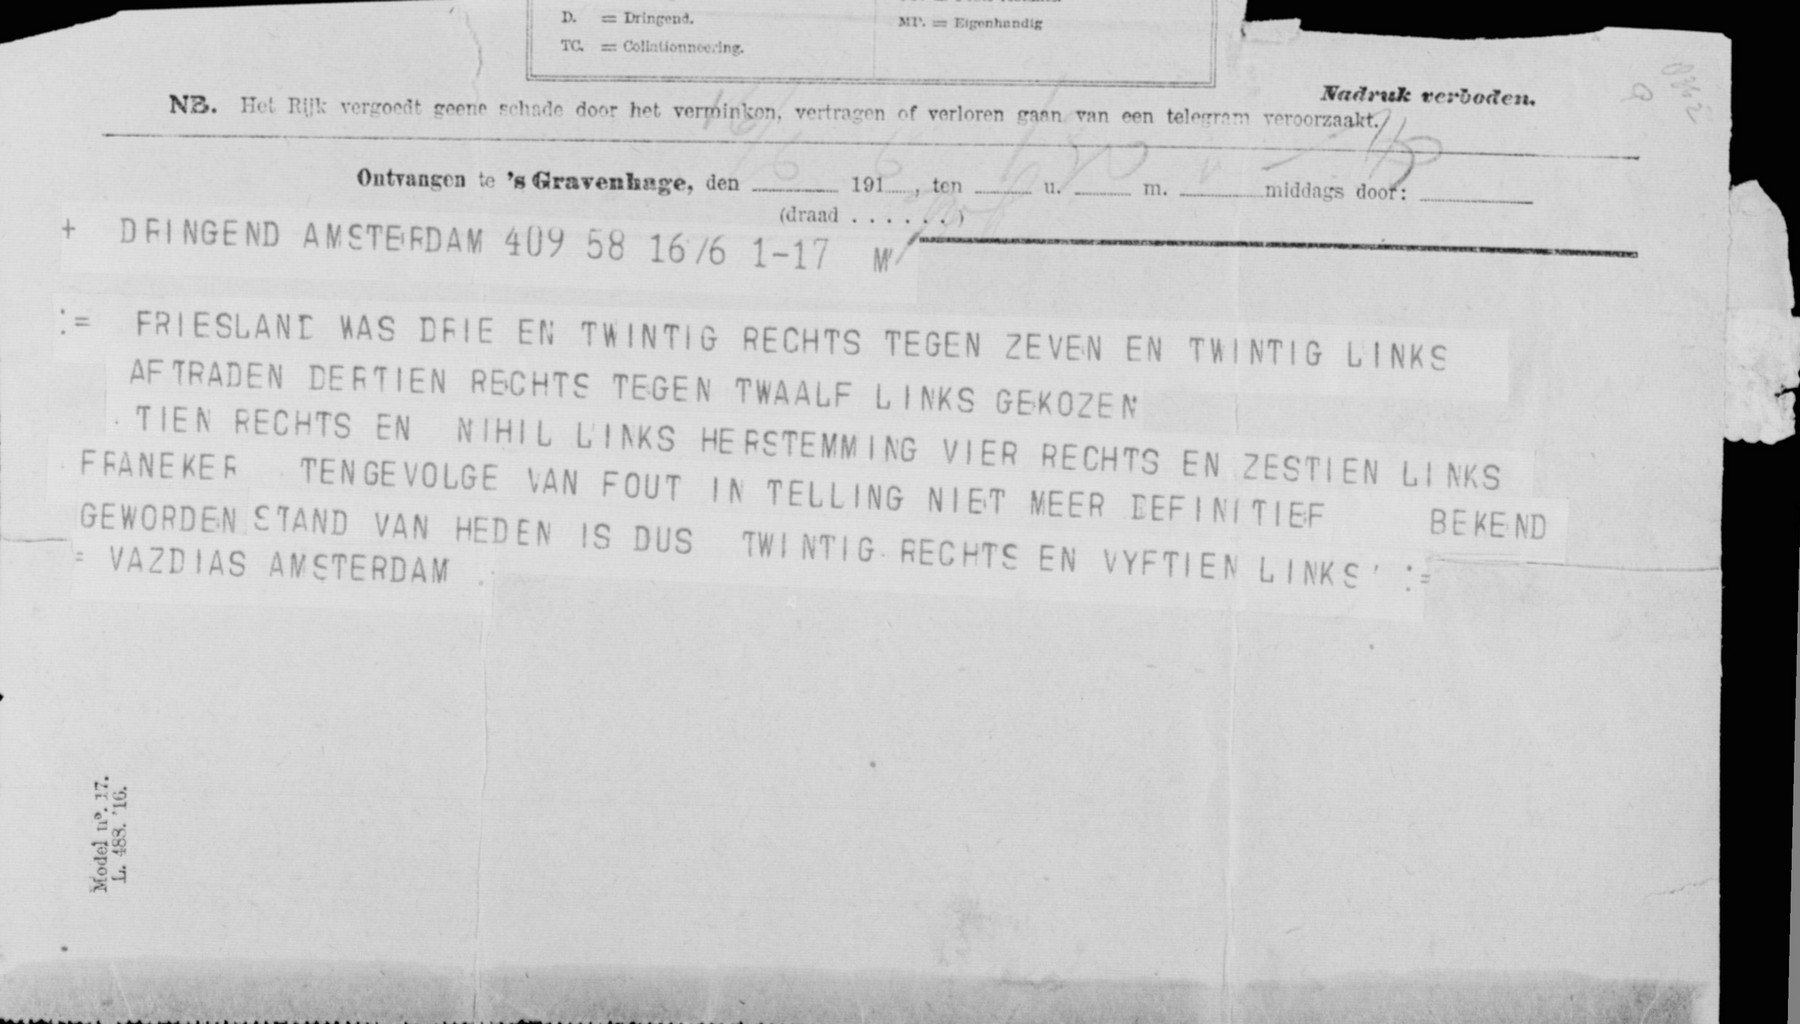 D. = Dringend.
MP. = Eigenhandig
TC. = Collationneering.
Nadruk verboden.
NB. Het Rijk vergoedt geene schade door het verminken, vertragen of verloren gaan van een telegram veroorzaakt.
Ontvangen te 's Gravenhage, den 191 , ten u. m. middags door:
(draad . . . . . . )
+ DRINGEND AMSTERDAM 409 58 16/6 1-17 M
:= FRIESLAND WAS DRIE EN TWINTIG RECHTS TEGEN ZEVEN EN TWINTIG LINKS
AFTRADEN DERTIEN RECHTS TEGEN TWAALF LINKS GEKOZEN
TIEN RECHTS EN NIHIL LINKS HERSTEMMING VIER RECHTS EN ZESTIEN LINKS
FRANEKER TENGEVOLGE VAN FOUT IN TELLING NIET MEER DEFINITIEF BEKEND
GEWORDEN STAND VAN HEDEN IS DUS TWINTIG RECHTS EN VYFTIEN LINKS :=
= VAZDIAS AMSTERDAM
Model nº. 17.
L. 488. '16.